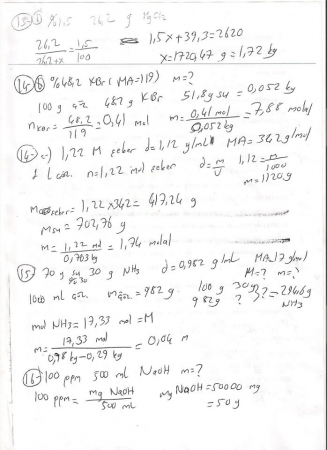 %1,5 26,2 g
26,2 / 262+x = 1,5 / 100
1,5x+39,3=2620
x=1720,47 g=1,72 kg
(14) b) %48,2 KBr (MA=119) m=?
100 g çöz. 48,2 g KBr 51,8 g su = 0,052 kg
nKBr = 48,2 / 119 = 0,41 mol m = 0,41 mol / 0,052 kg = 7,88 molal
(14) c) 1,22 M şeker d=1,12 g/mL MA=342 g/mol
1 L çöz. n=1,22 mol şeker d = m / V 1,12 = m / 1000
m=1120 g
m şeker = 1,22 x 342 = 417,24 g
m su = 702,76 g
m = 1,22 mol / 0,703 kg = 1,74 molal
(15) 70 g su 30 g NH3 d=0,982 g/mL MA=17 g/mol
M=? m=?
1000 mL çöz. mçöz = 982 g 100 g 30 g
982 g ? ?=294,6 g NH3
mol NH3 = 17,33 mol = M
m = 17,33 mol / 0,98 kg - 0,29 kg = 0,04 m
(16) 100 ppm 500 mL NaOH m=?
100 ppm = mg NaOH / 500 ml mg NaOH = 50000 mg
= 50 g